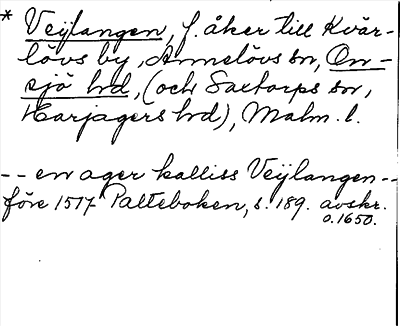 * Veijlangen, f. åker till Kvär-
lövs by, Annelövs sn, On-
sjö hd, (och Saxtorps sn,
Harjagers hd), Malm. l.
-- en ager kalliss Veijlangen --
före 1517 Palteboken, s. 189. avskr.
o. 1650.